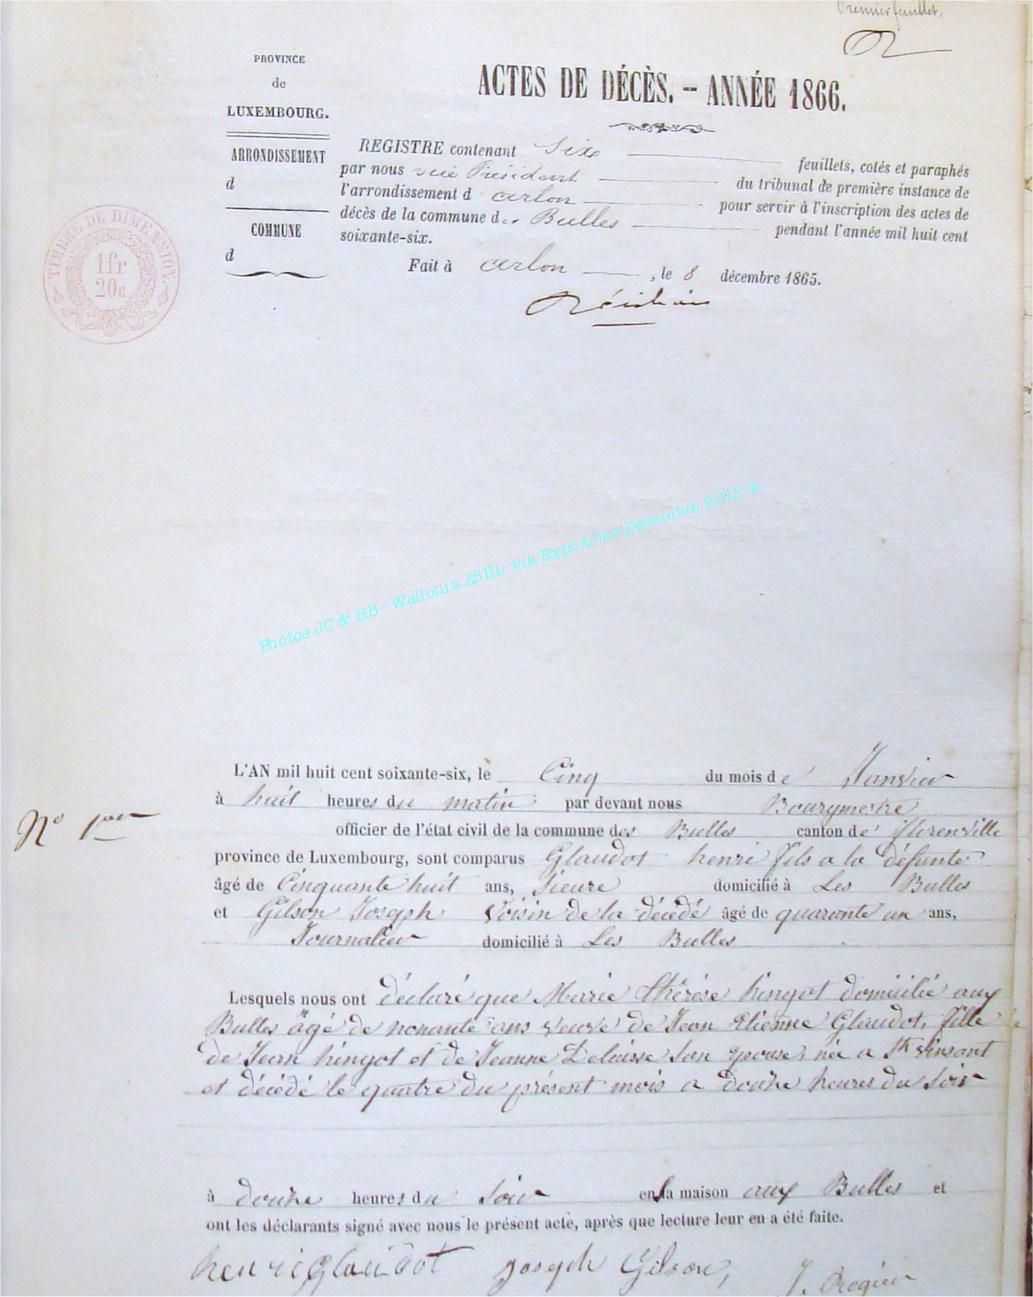 Premier feuillet.
PROVINCE
de
LUXEMBOURG.
ARRONDISSEMENT
d
COMMUNE
d
TIMBRE DE DIMENSION.
1fr
20c
ACTES DE DÉCÈS. — ANNÉE 1866.
REGISTRE contenant Six feuillets, cotés et paraphés
par nous vice Président du tribunal de première instance de
l'arrondissement d arlon pour servir à l'inscription des actes de
décès de la commune des Bulles pendant l'année mil huit cent
soixante-six.
Fait à arlon, le 8 décembre 1865.
Photos JC & HB - Wallonia ASBL- via ExpoActes Décembre 2012 ®
L'AN mil huit cent soixante-six, le Cinq du mois de Janvier
à huit heures du matin par devant nous Bourgmestre
N° 1er
officier de l'état civil de la commune des Bulles canton de florenville
province de Luxembourg, sont comparus Glaudot henri fils a la défunte
âgé de Cinquante huit ans, domicilié à Les Bulles
et Gilson Joseph Voisin de la décédé âgé de quarante un ans,
Journalier domicilié à Les Bulles
Lesquels nous ont déclaré que Marie thérèse hingot domicilié aux
Bulles âgé de nonante ans veuve de Jean Etienne Glaudot, fille
de Jean hingot et de Jeanne Son epouse, née a St vinsant
et décédé le quatre du présent mois a douze heures du soir
à douze heures du Soir en la maison aux Bulles et
ont les déclarants signé avec nous le présent acte, après que lecture leur en a été faite.
henri glaudot joseph Gilson,